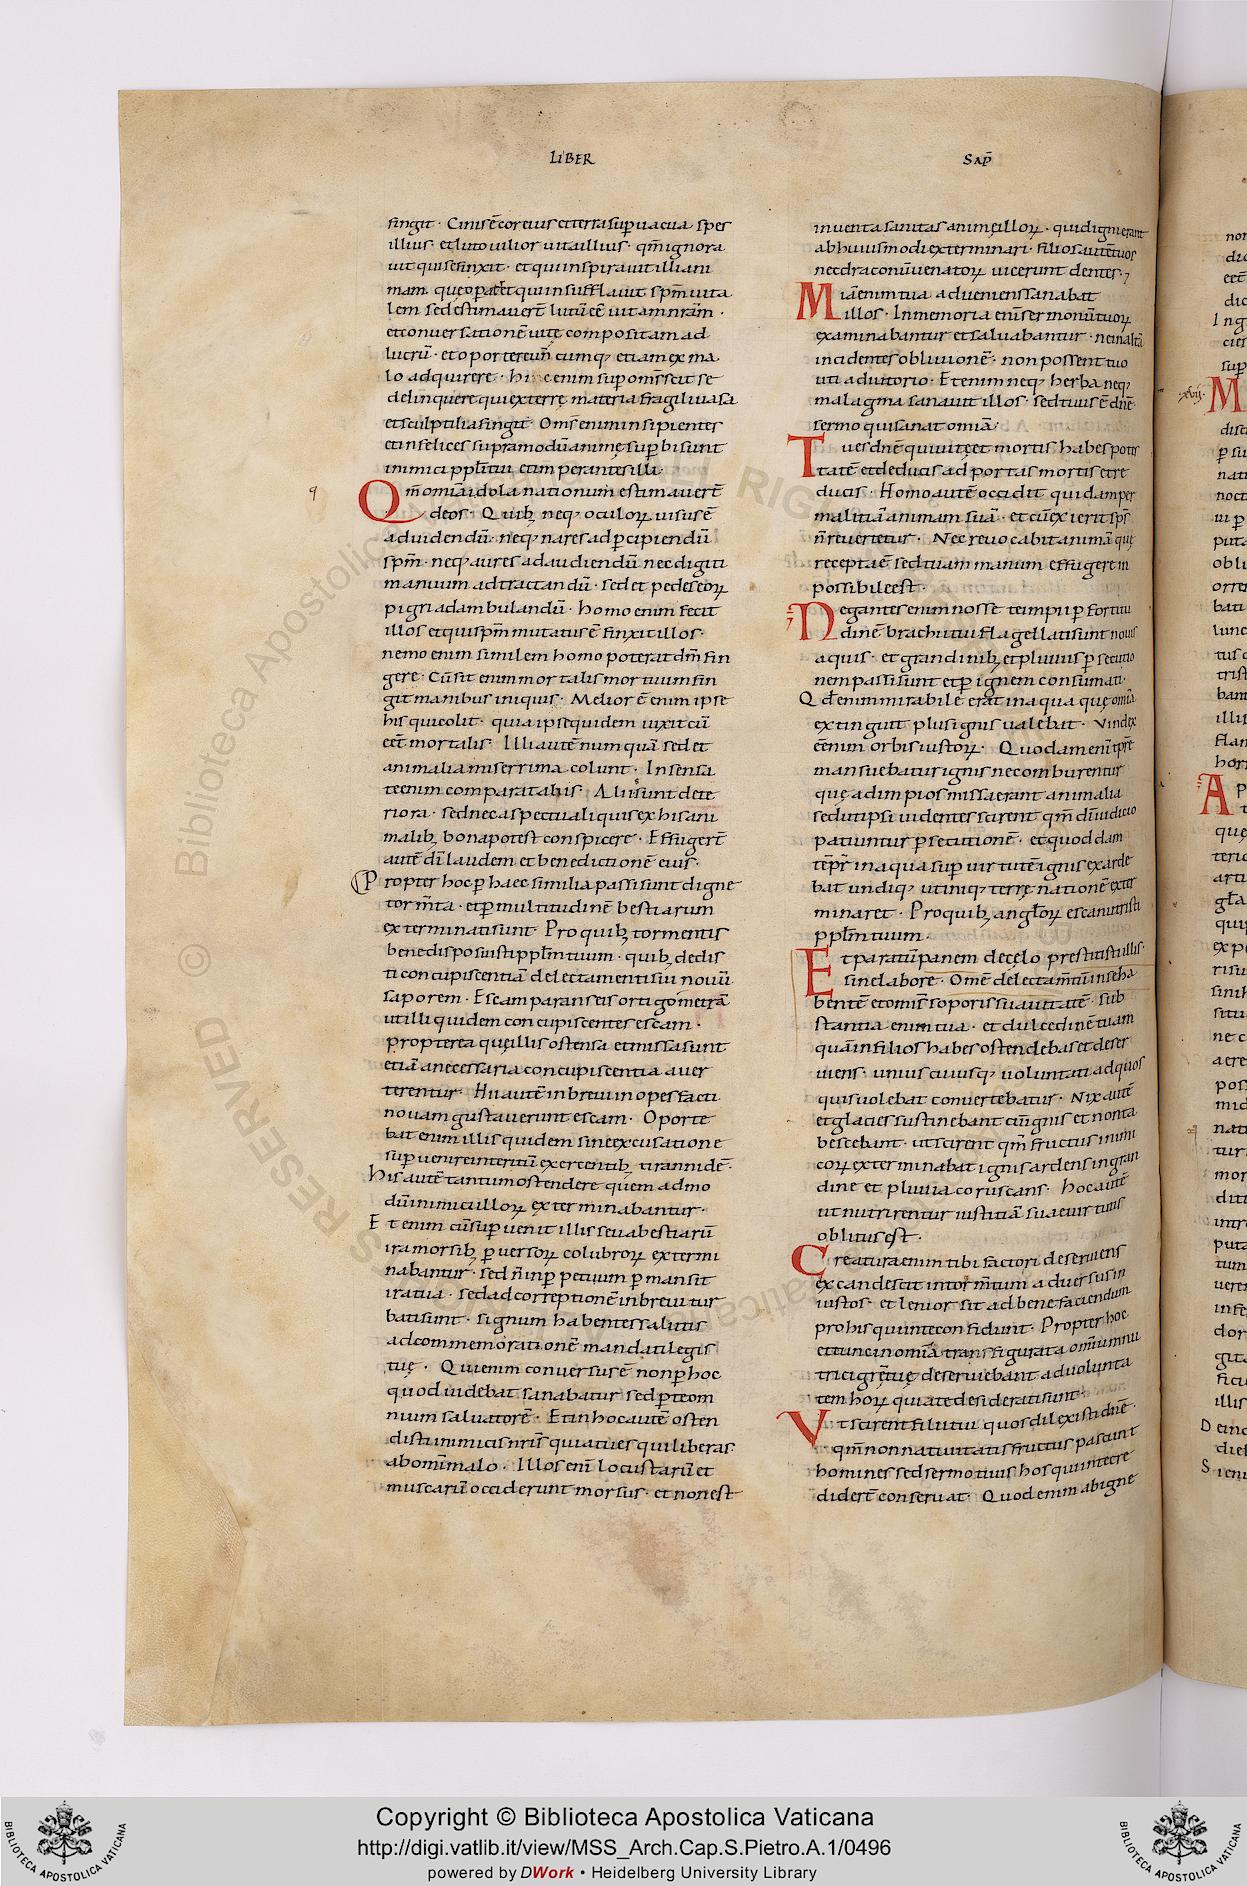 LIBER
SAP̄
fingit · Cinis ē cor eius et terra superuacua spes
illius · et luto uilior uita illius · qm̄ ignora
uit qui se finxit · et qui inspirauit illi ani
mam. quę oꝑatēt qui insufflauit sp̄m uita
lem sed estimauert̄ lutū ēē uitam nr̄am ·
et conuersationē uitę compositam ad
lucrū · et oportere un̄cumq; etiam ex ma
lo adquirere · hic enim sup om̄s scit se
delinquere qui ex terrę materia fragilia uasa
et sculptilia fingit · Om̄s enim insipientes
et infelices supra modū animę suꝑbi sunt
inimici ppl̄i tui et imperantes illi ·
Qm̄ omia idola nationum estimauert̄
deos · Quib; neq; oculoꝝ uisus ē
ad uidendū · neq; nares ad ꝑcipiendū
sp̄m · neq; aures ad audiendū nec digiti
manuum ad tractandū · sed et pedes eoꝝ
pigri ad ambulandū · homo enim fecit
illos et qui sp̄m mutatus ē finxit illos ·
nemo enim similem homo poterat dm̄ fin
gere · Cū sit enim mortalis mortuum fin
git manibus iniquis · Melior ē enim ipse
his qui colit · quia ipse quidem uixit cū
eēt mortalis · Illi autē numquā sed et
animalia miserrima colunt · Insensa
te enim comparata his · Aliis sunt dete
riora · sed nec aspectu aliquis ex his ani
malib; bona potest conspicere · Effugert̄
autē dī laudem et benedictionē eius ·
Propter hoc ꝑ haec similia passi sunt digne
torm̄ta · et ꝑ multitudinē bestiarum
exterminati sunt · Pro quib; tormentis
bene disposuisti ppl̄m tuum · quib; dedis
ti concupiscentiā delectamenti sui nouū
saporem · Escam parans eis ortigometrā
ut illi quidem concupiscentes escam ·
propterea quę illis ostensa et missa sunt
etiā a necessaria concupiscentia auer
terentur · Hii autē in breui inopes facti
nouam gustauerunt escam · Oporte
bat enim illis quidem sine excusatione
suꝑuenire interitū exercentib; tirannidē ·
his autē tantum ostendere quem admo
dū inimici illoꝝ exterminabantur ·
Et enim cū suꝑuenit illis seua bestiarū
ira morsib; ꝑuersoꝝ colubroꝝ extermi
nabantur · sed n̄ in ꝑpetuum ꝑmansit
ira tua · sed ad correptionē in breui tur
bati sunt · signum habentes salutis
ad commemorationē mandati legis
tuę · Qui enim conuersus ē non ꝑ hoc
quod uidebat sanabatur sed ꝑ te om
nium saluatorē · Et in hoc autē osten
disti inimicis nr̄is quia tu es qui liberas
ab om̄i malo · Illos enī locustarū et
muscarū occiderunt morsus · et non est
inuenta sanitas animę illoꝝ · qui digni erant
ab huiusmodi exterminari · filios autē tuos
nec draconū uenatoꝝ uicerunt dentes ·
Mia enim tua adueniens sanabat
illos · In memoria enī sermonū tuoꝝ
examinabantur et saluabantur · ne in altā
incidentes obliuionē · non possent tuo
uti adiutorio · Etenim neq; herba neq;
malagma sanauit illos · sed tuus ē dn̄e
sermo qui sanat omia ·
Tu es dn̄e qui uitę et mortis habes potes
tatē et deducis ad portas mortis et re
ducis · Homo autē occidit quidam per
malitiā animam suā · et cū exierit sp̄s
n̄ reuertetur · Nec reuocabit animā quę
recepta ē sed tuam manum effugere in
possibile est ·
Negantes enim nosse te impii ꝑ fortitu
dinē brachii tui flagellati sunt nouis
aquis · et grandinib; et pluuiis ꝑsecutio
nem passi sunt et ꝑ ignem consūmati ·
Qd̄ enim mirabile erat in aqua quę omia
extinguit plus ignis ualebat · Vindex
ē enim orbis iustoꝝ · Quodam enī tp̄re
mansuebatur ignis ne comburentur
quę ad impios missa erant animalia
sed ut ipsi uidentes scirent qm̄ dī iudicio
patiuntur ꝑsecutionē · et quoddam
tēpr̄ in aqua sup uirtutē ignis exarde
bat undiq; ut iniq; terrę nationē exter
minaret · Pro quib; angl̄oꝝ esca nutristi
ppl̄m tuum ·
Et paratū panem de cęlo prestitisti illis
sine labore · Omē delectam̄tū in se ha
bentē et omis̄ soporis suauitatē · sub
stantia enim tua · et dulcedinē tuam
quā in filios habes ostendebas et deser
uiens · unius cuiusq; uoluntati ad quos
quis uolebat conuertebatur · Nix autē
et glacies sustinebant cū ignis et non ta
bescebant · ut scirent qm̄ fructus inimi
coꝝ exterminabat ignis ardens in gran
dine et pluuia coruscans · hoc autē
ut nutrirentur iusti etiā suae uirtutis
oblitus est ·
Creatura enim tibi factori deseruiens
excandescit in torm̄tum aduersus in
iustos · et lenior fit ad bene faciendum
pro his qui in te confidunt · Propter hoc
et tunc in omiā transfigurata omium nu
trici gr̄e tuę deseruiebant ad uolunta
tem hoꝝ qui a te desiderati sunt ·
Vt scirent filii tui quos dilexisti dn̄e ·
qm̄ non natiuitatis fructus pascunt
homines sed sermo tuus hos qui in te cre
diderīt conseruat · Quod enim ab igne
Copyright © Biblioteca Apostolica Vaticana
http://digi.vatlib.it/view/MSS_Arch.Cap.S.Pietro.A.1/0496
powered by DWork • Heidelberg University Library